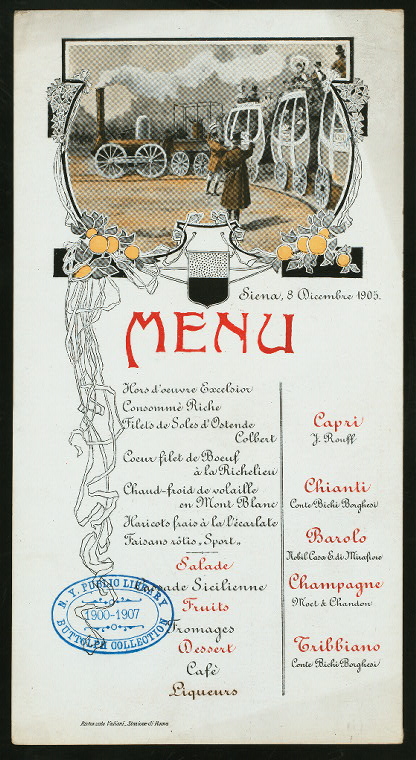 Siena, 8 Dicembre 1905.
MENU
Hors d'oeuvre Excelsior
Consommè Riche
Filets de Soles d'Ostende
Colbert
Coeur filet de Boeuf
à la Richelieu
Chaud-froid de volaille
en Mont Blanc
Haricots frais à la l'écarlate
Faisans rôtis „Sport„
Salade
Sicilienne
Fruits
Fromages
Dessert
Cafè
Liqueurs
Capri
J. Rouff
Chianti
Conte Bichi Borghesi
Barolo
Nobil Casa E. di Mirafiore
Champagne
Moet & Chandon
Tribbiano
Conte Bichi Borghesi
N. Y. PUBLIC LIBRARY
1900-1907
BUTTOLPH COLLECTION
Ristorante Valiani, Stazione di Roma